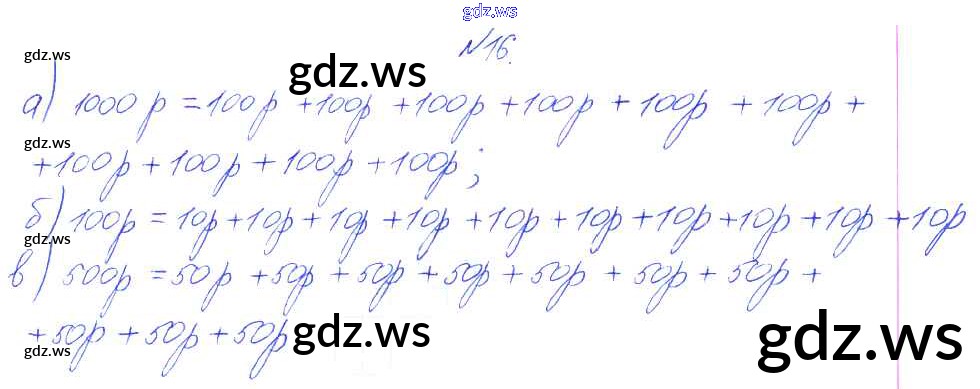 gdz.ws
№16.
gdz.ws
gdz.ws
а) 1000 р = 100р + 100р + 100р + 100р + 100р + 100р +
gdz.ws
+ 100р + 100р + 100р + 100р;
б) 100р = 10р + 10р + 10р + 10р + 10р + 10р + 10р + 10р + 10р + 10р
gdz.ws
в) 500р = 50р + 50р + 50р + 50р + 50р + 50р + 50р +
+ 50р + 50р + 50р
gdz.ws
gdz.ws
gdz.ws